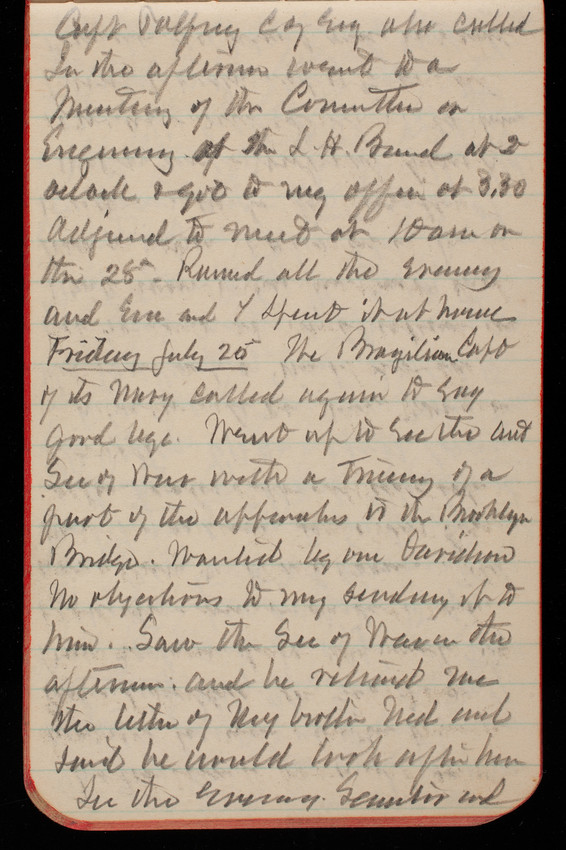 Capt Palfrey C of Eng also called
In the afternoon went to a
Meeting of the Committee on
at the L. H. Board at 2
oclock & got to my office at 3.30
Adjrnd to meet at 10 am on
the 28th. Rained all the evening
and Eva and I spent it at home
Friday July 25 The Brazilian Capt
of its Navy called again to say
good bye. Went up to see the
Sec of War with a of a
part of the apparatus to the Brooklyn
Bridge. Wanted by one Davidson
No objections to my sending it to
him. Saw the Sec of War in the
afternoon. and he returned me
the letter of My brother Ned and
said he would look after him
In the evening. Senator and